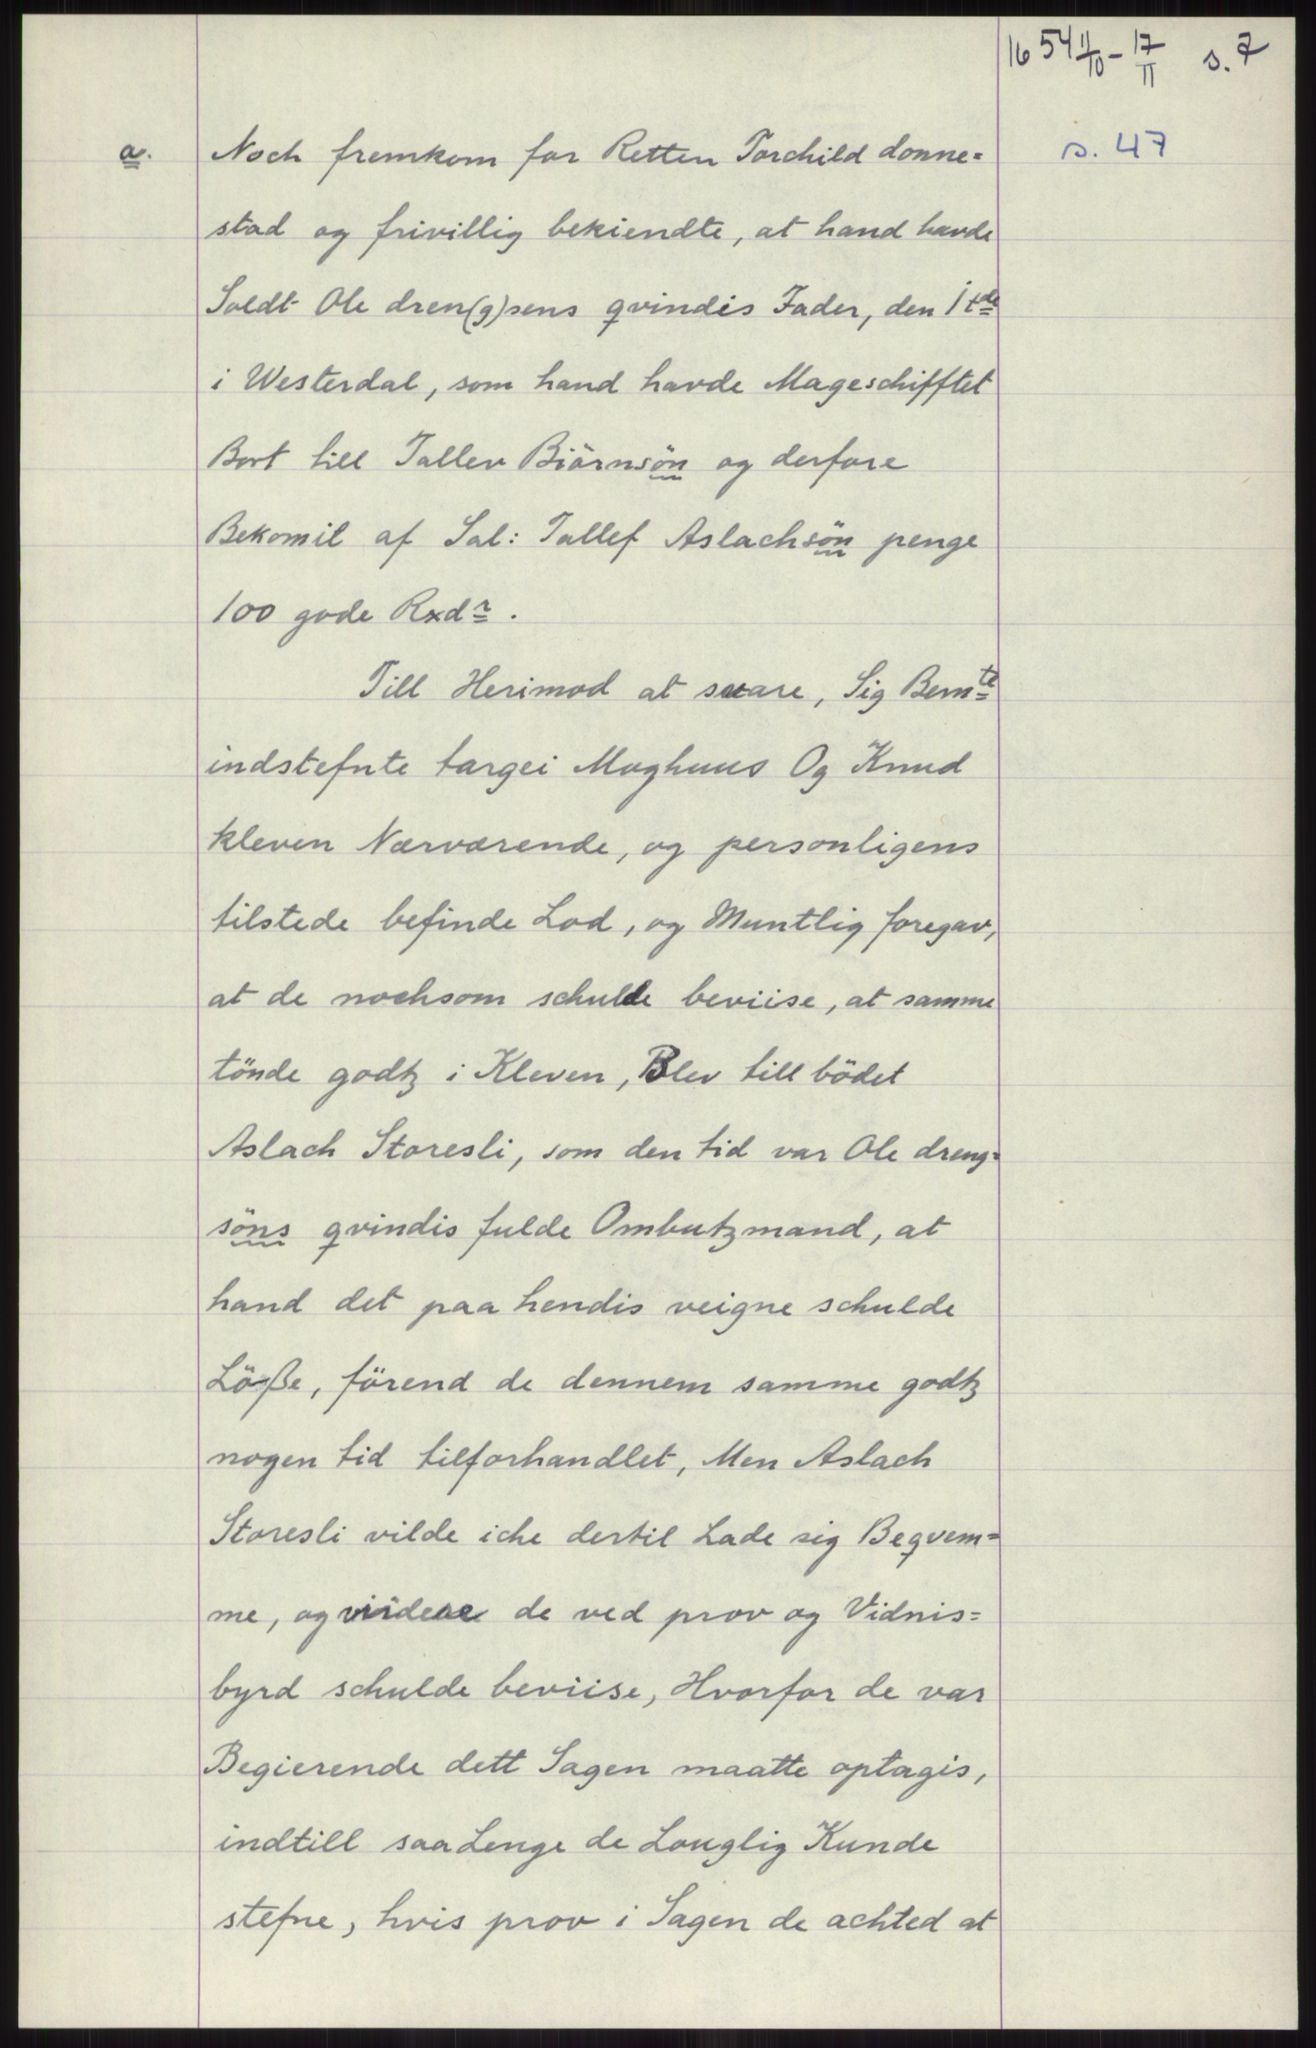 1654 11/10 - 17/11 s. 7
s. 47
a. Noch fremkom for Retten Torchild donne=
stad og frivillig bekiendte, at hand havde
Soldt Ole dren(g)sens qvindis Fader, den 1 tde
i Westerdal, som hand havde Mageschifftet
Bort till Tallev Biörnsön og derfore
Bekomit af Sal: Tallef Aslachsön penge
100 gode Rxdr.
Till Herimod at svare, Sig Bemte
indstefnte targei Moghuus Og Knud
kleven Nærværende, og personligens
tilstede befinde Lod, og Muntlig foregav,
at de nochsom schulde beviise, at samme
tönde godtz i Kleven, Blev till bödet
Aslach Storesli, som den tid var Ole dreng=
söns qvindis fulde Ombutzmand, at
hand det paa hendis veigne schulde
Löße, förend de dennem samme godtz
nogen tid tilforhandlet, Men Aslach
Storesli vilde iche dertil Lade sig Beqvem=
me, og viidere de ved prov og Vidnis=
byrd schulde beviise, Hvorfor de var
Begierende dett Sagen maatte optagis,
indtill saa Lenge de Louglig Kunde
stefne, hvis prov i Sagen de achted at